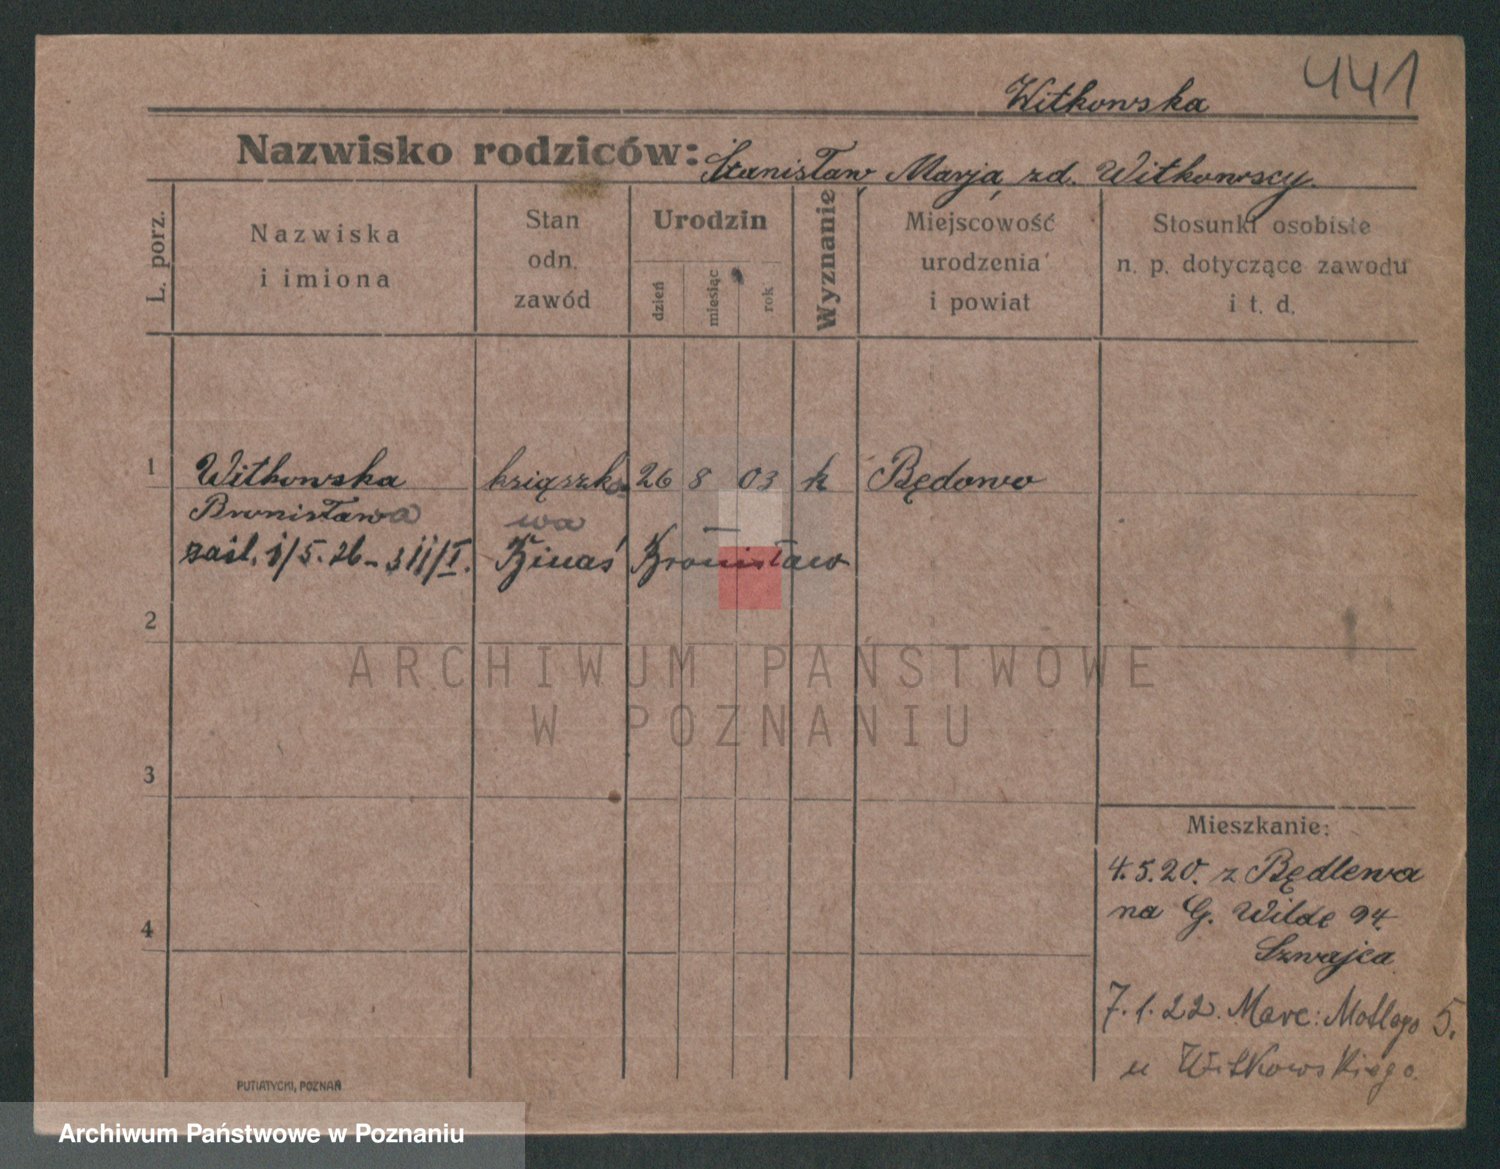 441
Witkowska
Nazwisko rodziców: Stanisław Marja zd. Witkowscy.
L. porz.
Nazwiska
i imiona
Stan
odn.
zawód
Urodzin
dzień
miesiąc
rok
Wyznanie
Miejscowość
urodzenia
i powiat
Stosunki osobiste
n. p. dotyczące zawodu
i t. d.
1 Witkowska książko 26 8 03 k Będowo
Bronisława wa
zaśl. 1/5. 26 - Binaś Bronisław
2
ARCHIWUM PAŃSTWOWE
W POZNANIU
3
4
Mieszkanie:
4.5.20. z Będlewa
na G. Wilde 94.
Szwajca
7.1.22. Marc: Mottego 5.
u Witkowskiego.
PUTIATYCKI, POZNAŃ
Archiwum Państwowe w Poznaniu